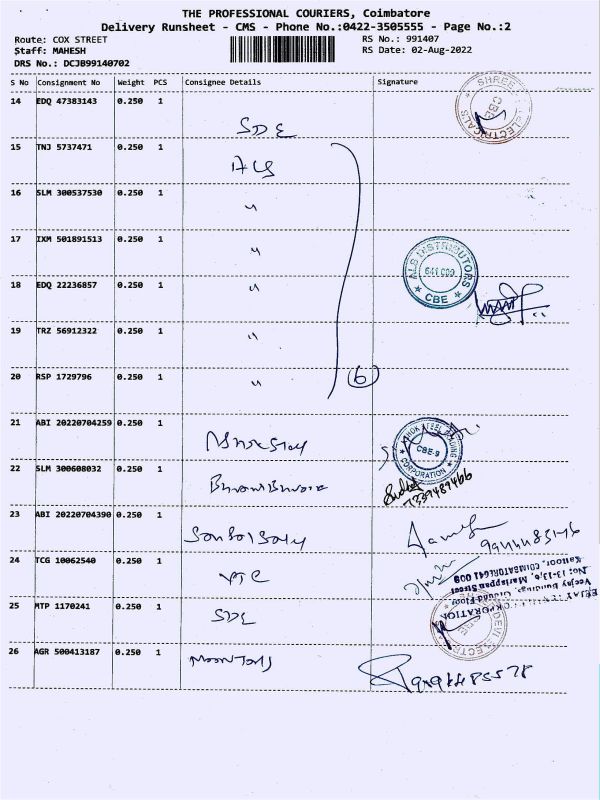 THE PROFESSIONAL COURIERS, Coimbatore
Delivery Runsheet - CMS - Phone No.:0422-3505555 - Page No.:2
Route: COX STREET
RS No.: 991407
Staff: MAHESH
RS Date: 02-Aug-2022
DRS No.: DCJB99140702
S No Consignment No Weight PCS Consignee Details Signature
14 EDQ 47383143 0.250 1 SDE
SHREE ELECTRICALS CBE
15 TNJ 5737471 0.250 1
16 SLM 300537530 0.250 1 "
17 IXM 501891513 0.250 1 "
ALB DISTRIBUTORS 641 009 CBE
18 EDQ 22236857 0.250 1 "
19 TRZ 56912322 0.250 1 "
20 RSP 1729796 0.250 1 " 6
21 ABI 20220704259 0.250 1
ASHOK STEEL TRADING CORPORATION CBE-9
22 SLM 300608032 0.250 1
7339489466
23 ABI 20220704390 0.250 1
24 TCG 10062540 0.250 1 VTC
CORPORATION
Veejay Buildings, Ground Floor
No: 13-13/6, Mariappan Street
Kattoor, COIMBATORE-641 009
25 MTP 1170241 0.250 1 SDE
DEVI ELECTRICALS
26 AGR 500413187 0.250 1